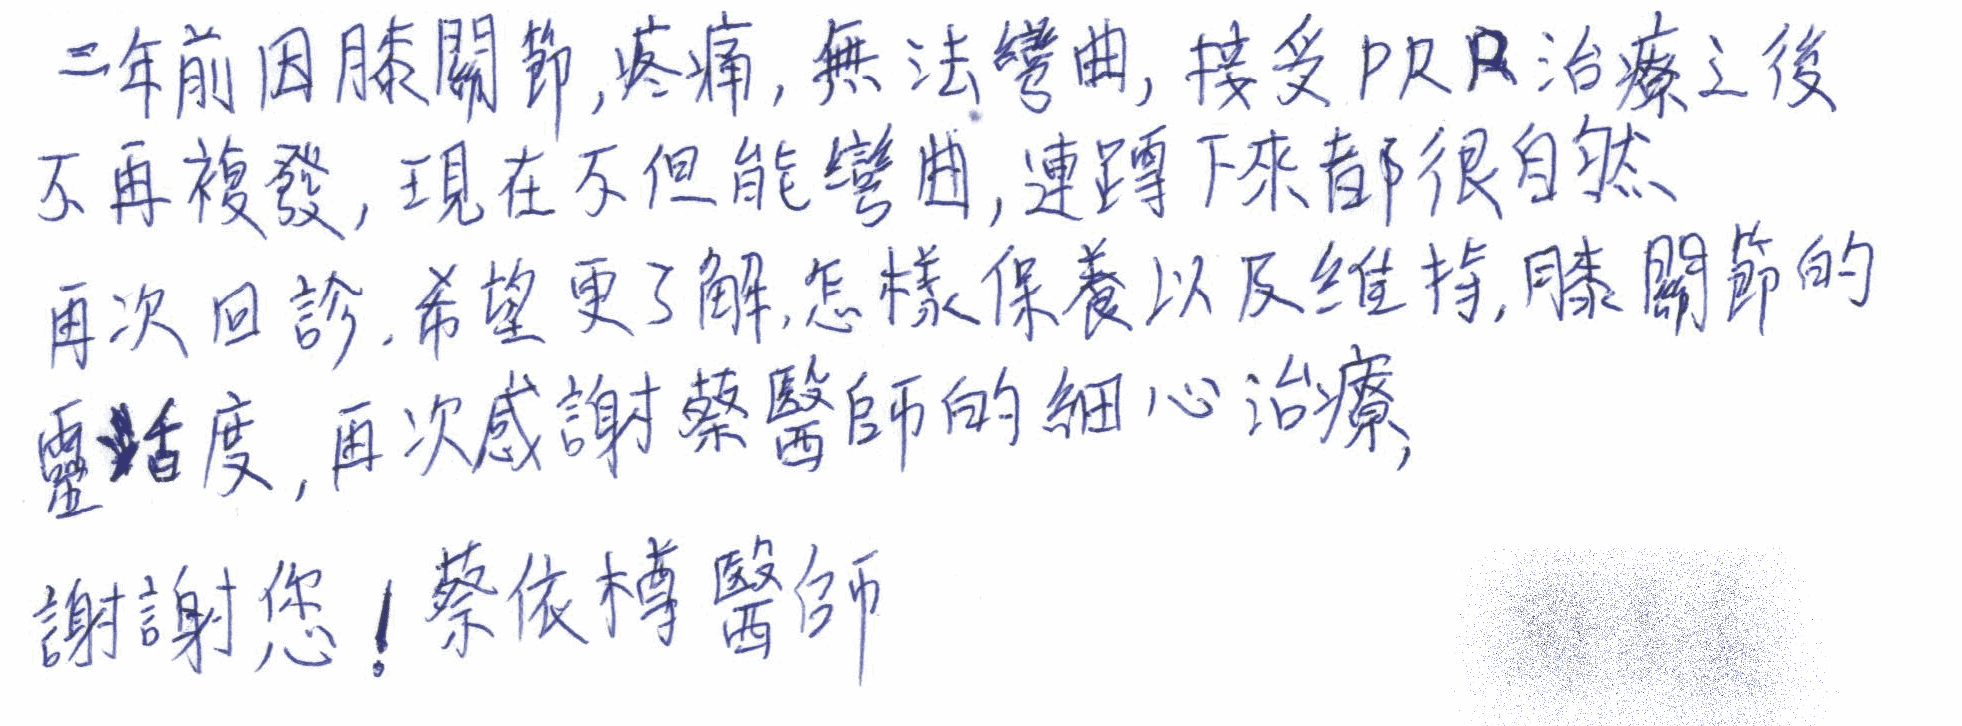 二年前因膝關節,疼痛,無法彎曲,接受PRP治療之後
不再複發,現在不但能彎曲,連蹲下來都很自然
再次回診.希望更了解.怎樣保養以及維持.膝關節的
靈活度,再次感謝蔡醫師的細心治療,
謝謝您!蔡依樽醫師